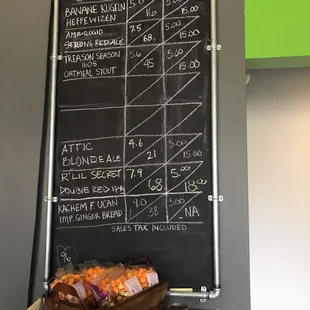 BANANE KUGELN 5.0 5.00
HEFFEWIZEN 16 15.00
AMBROGIO 7.5 5.00
STRONG RED ALE 68 15.00
TREASON SEASON 5.6 5.00
1608
OATMEAL STOUT 45 15.00
ATTIC 4.6 5.00
BLONDE ALE 21 15.00
R'LIL SECRET 7.9 5.00
DOUBLE RED IPA 68 18.00
KACHEM F. UCAN 9.0 5.00
IMP. GINGER BREAD 38 NA
SALES TAX INCLUDED